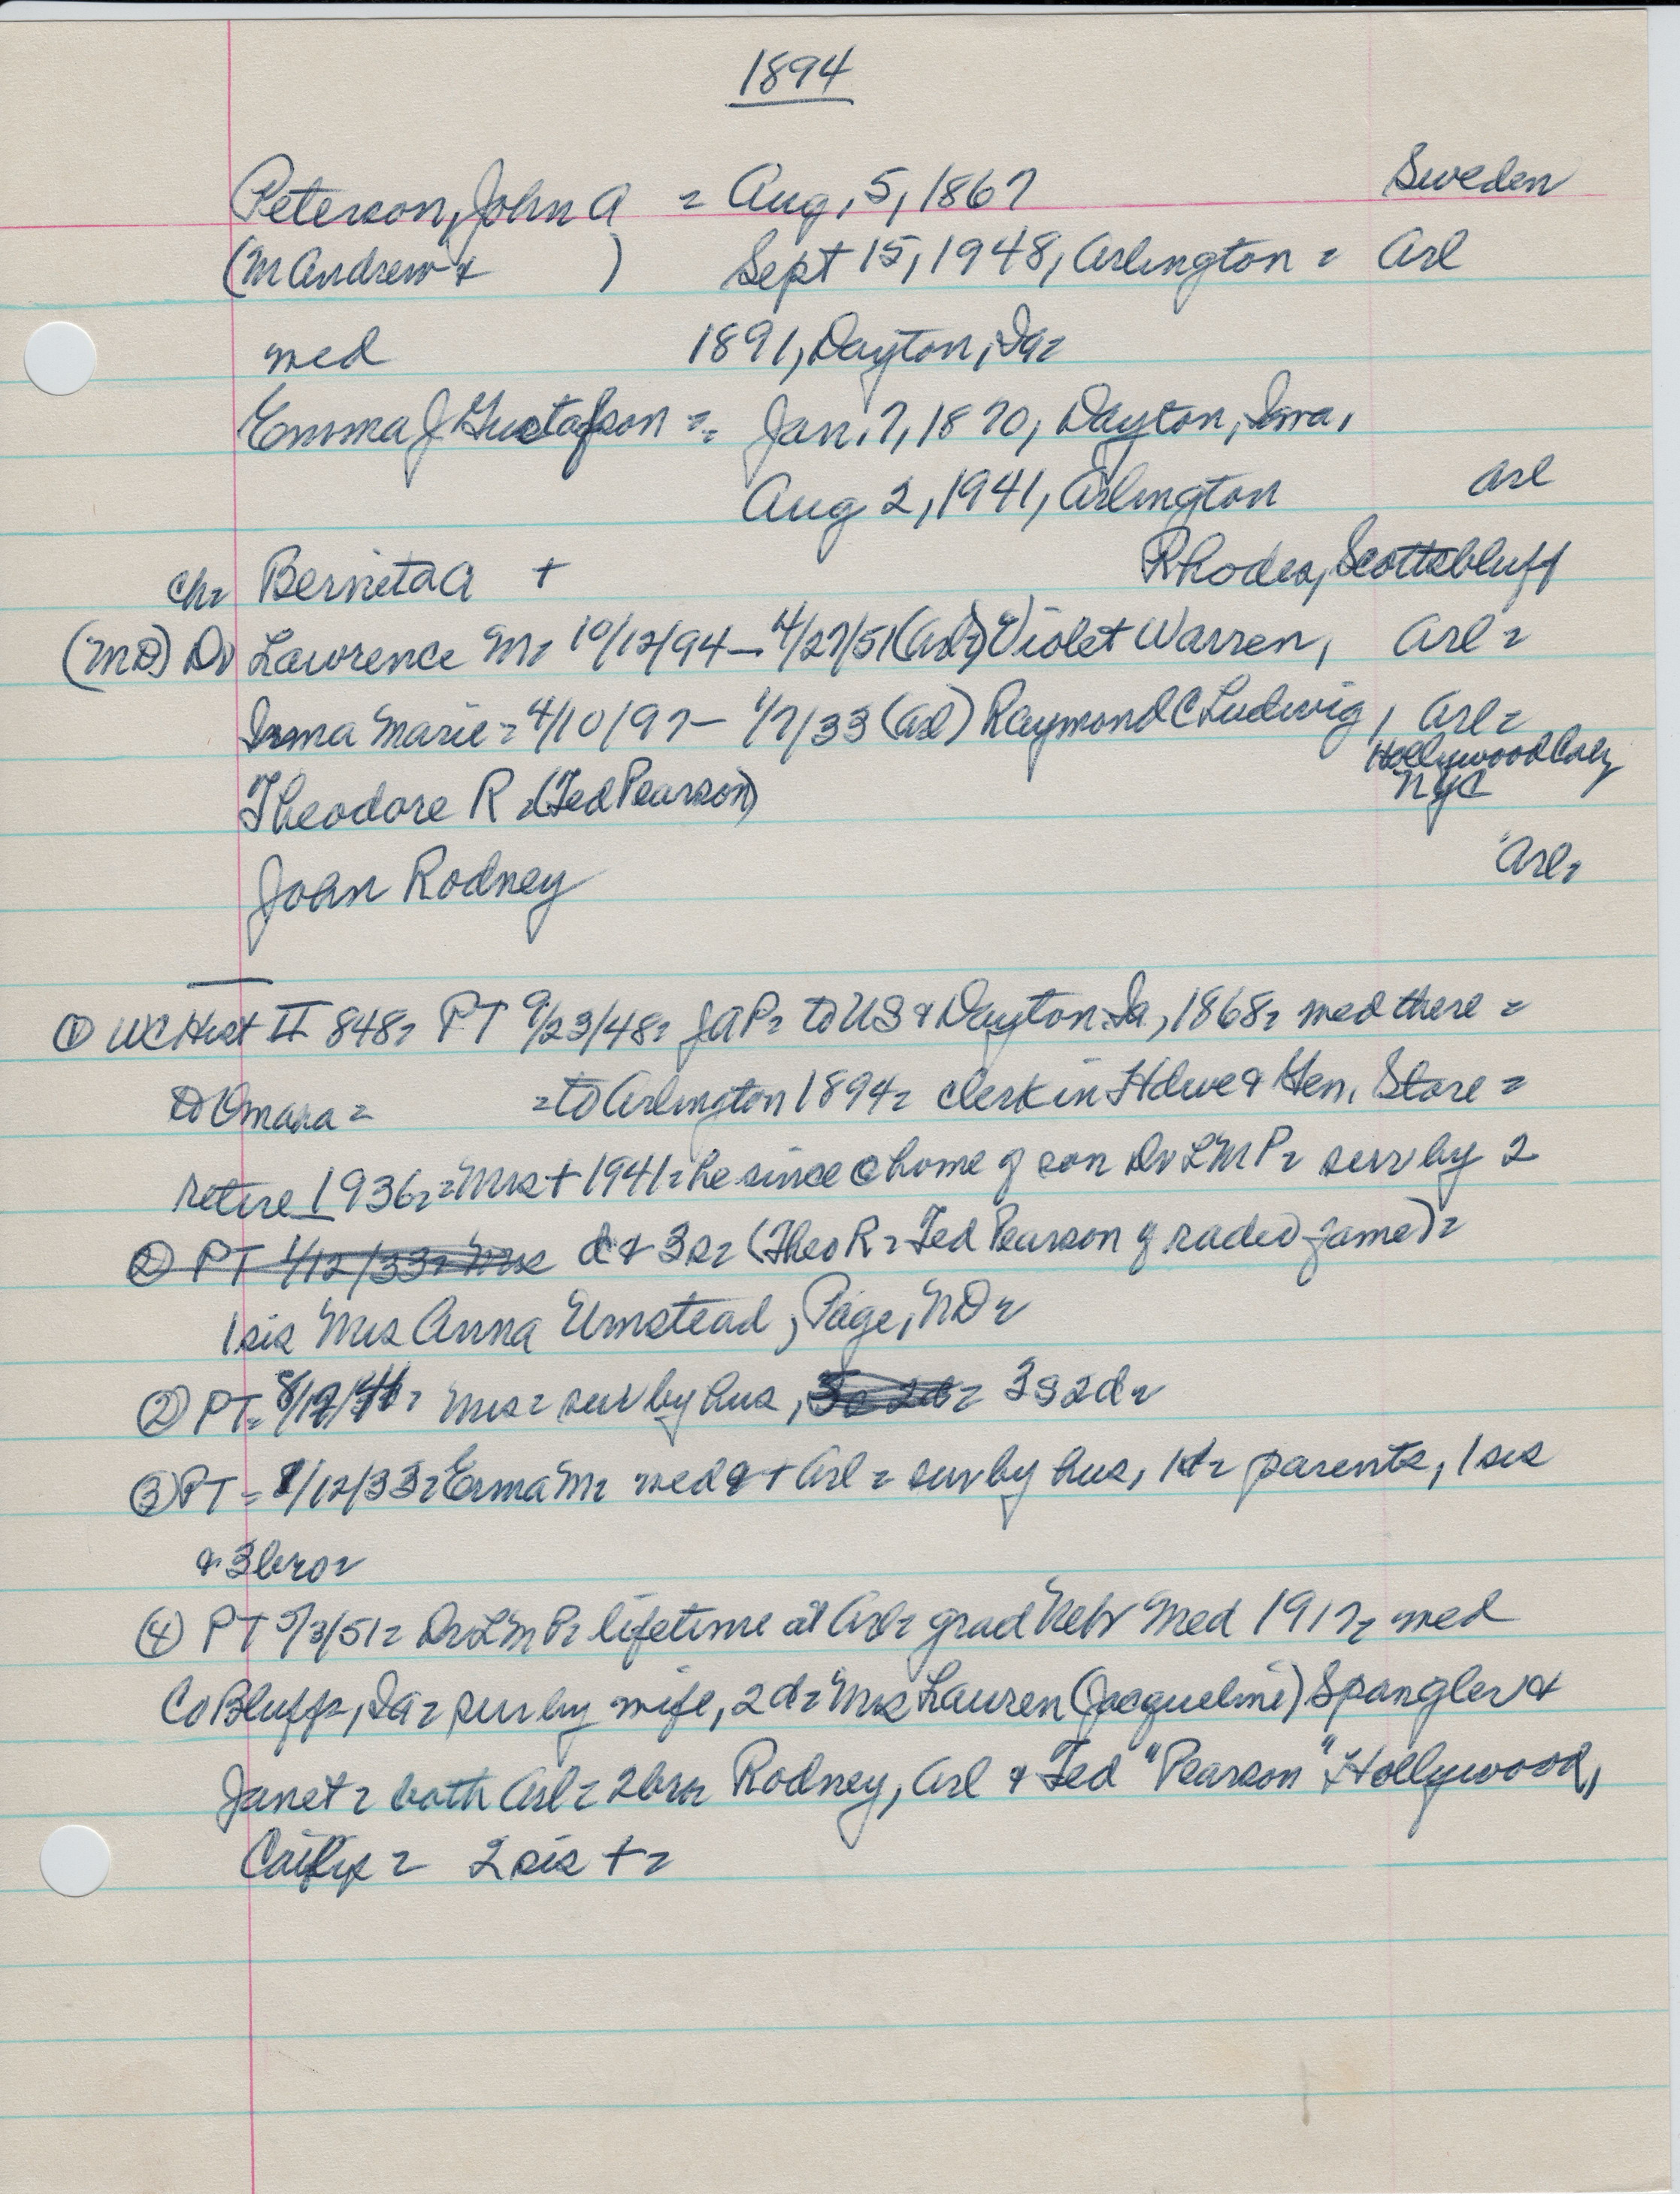 1894
Peterson, John A = Aug, 5, 1867 Sweden
(M Andrew & ) Sept 15, 1948, Arlington = Arl
med 1891, Dayton, Ia=
Emma J Gustafson = Jan. 7, 1870, Dayton, Iowa,
Aug 2, 1941, Arlington Arl
Ch= Bernita A + Rhodes, Scottsbluff
(MD) Dr Lawrence M= 10/12/94 - 4/27/51 (Arl) Violet Warren, Arl=
Irma Marie = 4/10/97 - 1/7/33 (Arl) Raymond C Ludwig, Arl=
Hollywood Calif
Theodore R = (Ted Pearson) NYC
John Rodney Arl=
① WC Hist II 848= PT 9/23/48= JAP= to US & Dayton Ia, 1868= med there =
to Omaha = = to Arlington 1894= clerk in Hdwe & Gen. Store =
retire 1936= = Mrs + 1941= he since @ home of son Dr LMP= surv by 2
② PT 1/12/33= Mrs d & 3s= (Theo R= Ted Pearson of radio fame)=
1 sis Mrs Anna Umstead, Page, ND=
② PT= 8/ /41= Mrs= surv by hus, 3s 2d= 3s 2d=
③ PT = 1/12/33= Erma M= med & + Arl= surv by hus, 1d= parents, 1 sis
& 3 bro=
④ PT 5/3/51= Dr LMP= lifetime at Arl= grad Nebr Med 1917= med
Co Bluffs, Ia= surv by wife, 2d= Mrs Lauren (Jacqueline) Spangler &
Janet= both Arl= 2 bro= Rodney, Arl & Ted "Pearson" Hollywood,
Calif= 2 sis +=